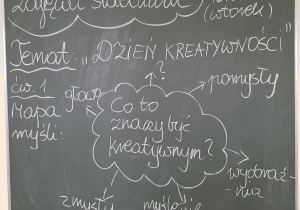 Zajęcia świetlicowe
(wtorek)
Temat: „DZIEŃ KREATYWNOŚCI"
?
ćw. 1
Mapa
myśli:
głowa
pomysły
Co to
znaczy być
kreatywnym?
wyobraź-
-nia
zmysły
myślenie